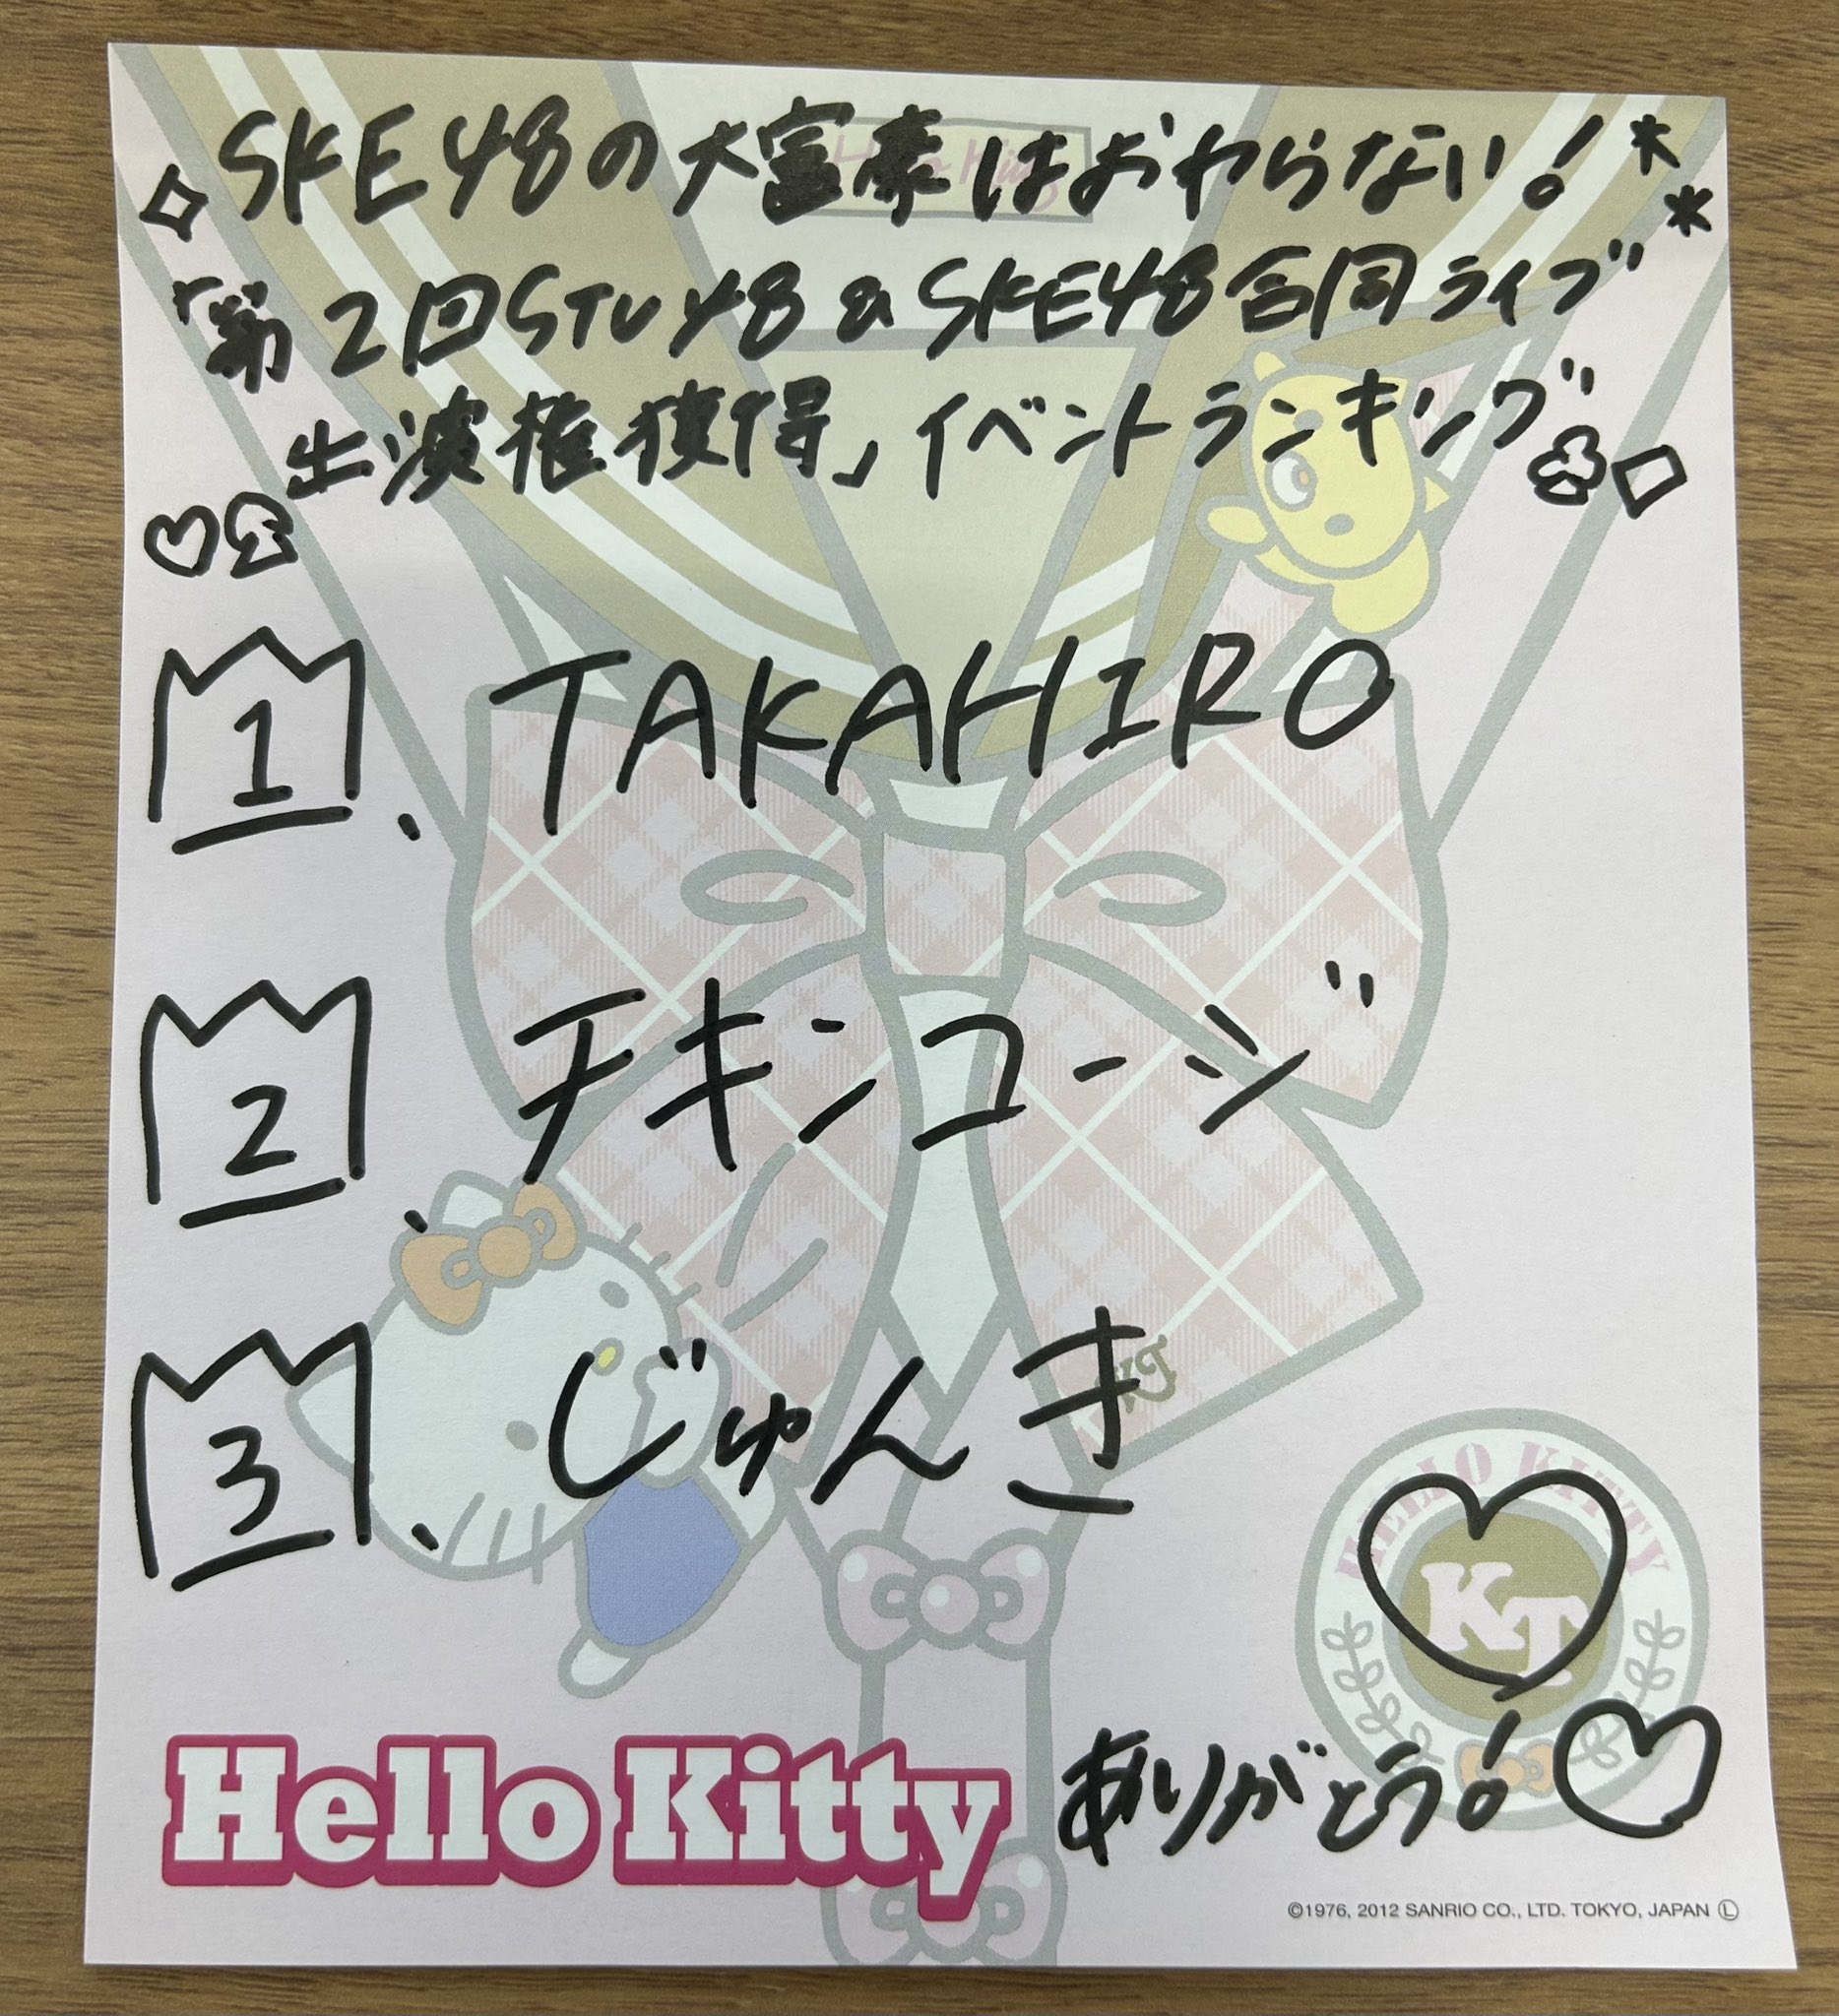 SKE48の大富豪はおわらない!
「第2回STU48&SKE48合同ライブ
出演権獲得」イベントランキング
1. TAKAHIRO
2. チキンコージ
3. じゅんき
KT
HELLO KITTY
KT
Hello Kitty
ありがとう!
©1976, 2012 SANRIO CO., LTD. TOKYO, JAPAN Ⓛ